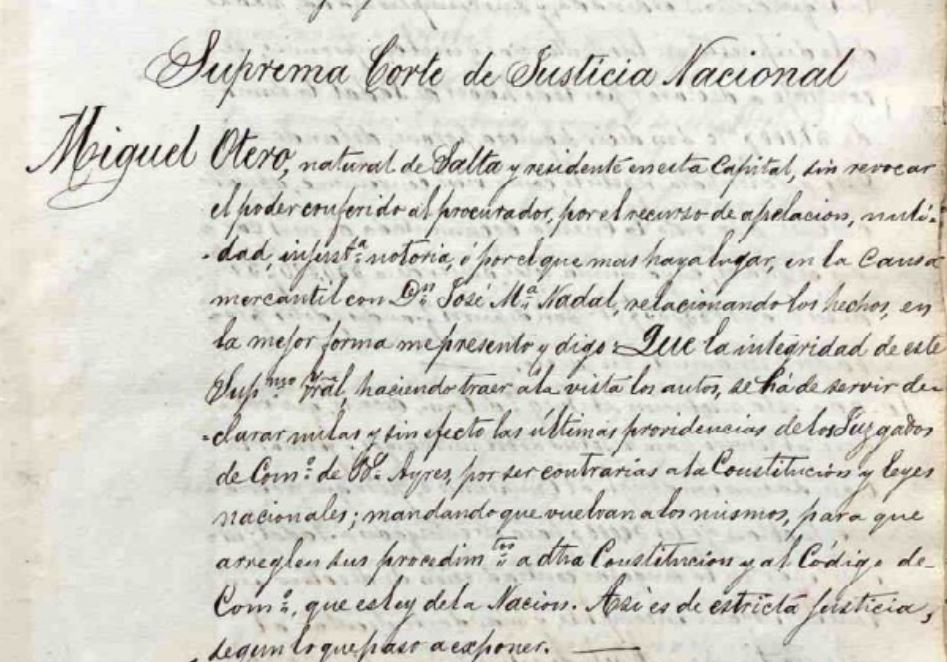 Suprema Corte de Justicia Nacional
Miguel Otero, natural de Salta y residente en esta Capital, sin revocar
el poder conferido al procurador, por el recurso de apelacion, nuli-
-dad, injust.ª notoria, ó por el que mas haya lugar, en la Causa
mercantil con D.n José M.ª Nadal, relacionando los hechos, en
la mejor forma me presento y digo: Que la integridad de este
Sup.mo Tral, haciendo traer á la vista los autos, se há de servir de-
-clarar nulas y sin efecto las últimas providencias de los Juzgados
de Com.o de B.s Ayres, por ser contrarias a la Constitucion y leyes
nacionales; mandando que vuelvan a los mismos, para que
arreglen sus procedim.tos a dha Constitucion y al Código de
Com.o, que es ley de la Nacion. Asi es de estricta justicia,
segun lo que paso a exponer.